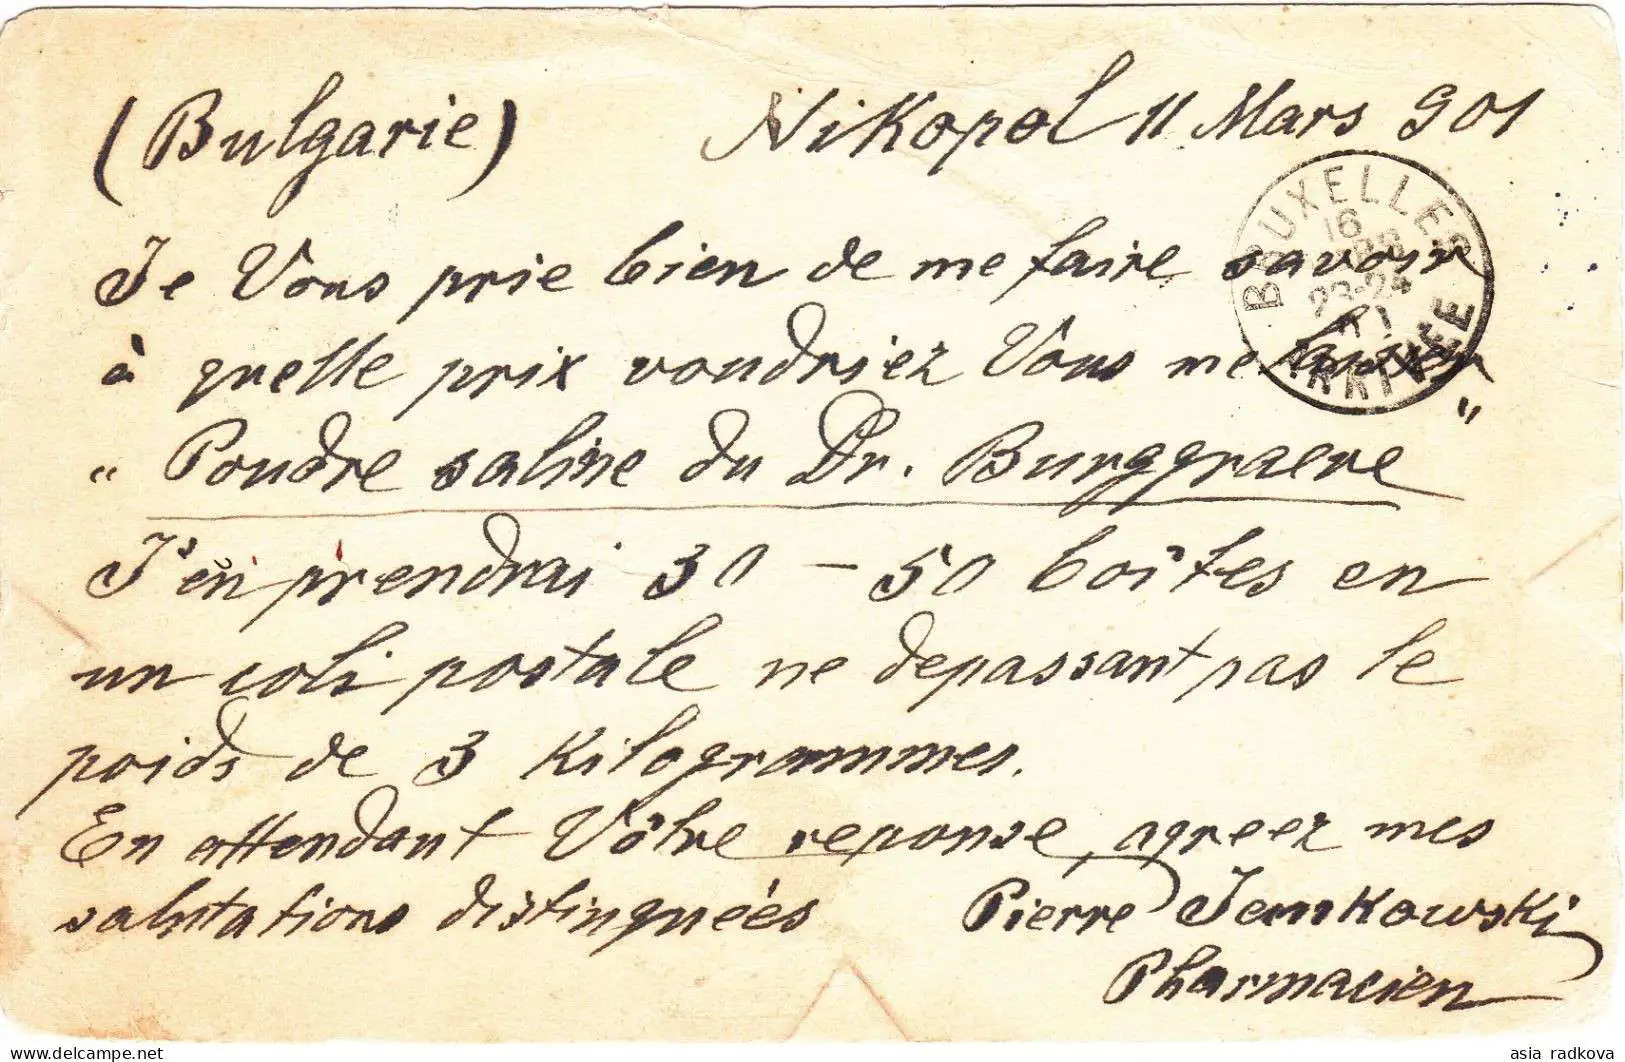 (Bulgarie) Nikopol 11 Mars 901
Je Vous prie bien de me faire savoir
à quelle prix voudriez Vous me laisser
„ Poudre saline du Dr. Burggraeve "
J'en prendrai 30 – 50 boîtes en
un coli postale ne depassant pas le
poids de 3 Kilogrammes.
En attendant Vôtre reponse, agreez mes
salutations distinguées Pierre
Pharmacien
BRUXELLES
16
23-24
ARRIVEE
www.delcampe.net
asia radkova